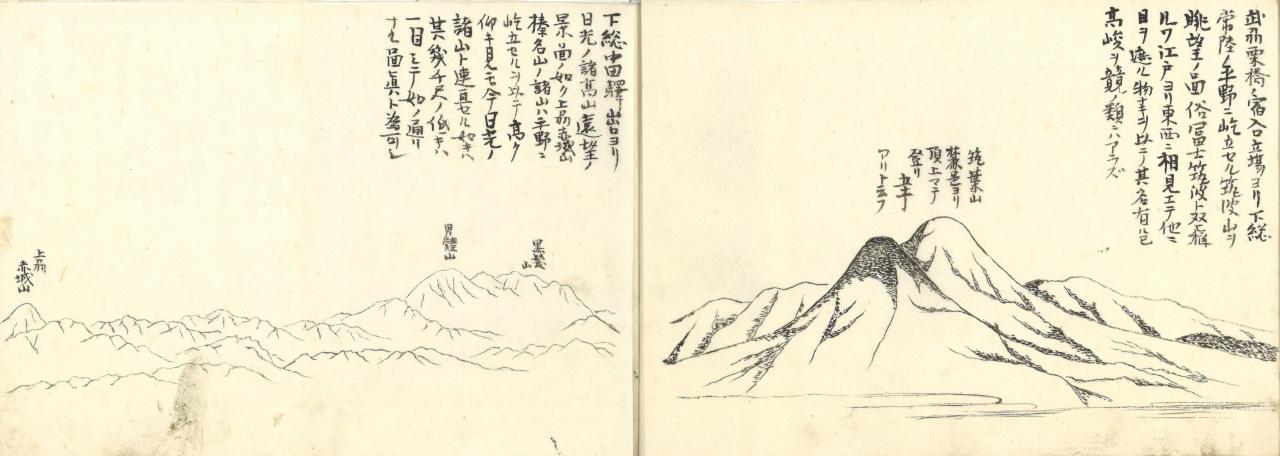 武州栗橋ノ宿合立場ヨリ下総
常陸ノ平野ニ屹立セル筑波山ヲ
眺望ノ図俗冨士筑波ト双ヒ稱
ルワ江戸ヨリ東西ニ相見エテ他ニ
目ヲ遮ル物ナキヲ以テ其名有ル已
高峻ヲ競ノ類ニハアラズ
筑葉山
麓邑ヨリ
頂上マテ
登リ
五十丁
アリト云フ
下総中田驛出口ヨリ
日光ノ諸髙山遠望ノ
景圖ノ如ク上州赤城山
榛名山ノ諸山ハ平野ニ
屹立セルヲ以テ高ク
仰キ見モ今日光ノ
諸山ト連亘セル如キハ
其幾千尺ノ低キハ
一目ミテ如ノ通リ
ナレ圖眞ト為可シ
黒髪山
男體山
上州
赤城山